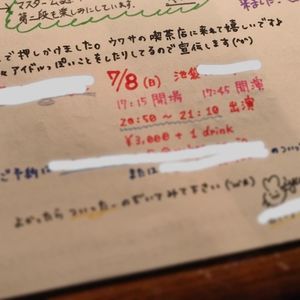 マスターム
第二段も楽しみにしています。
で押しかけました。ウワサの喫茶店に来れて嬉しいですよ
アイドルっぽいことをしたりしてるので宣伝します(^o^)
7/8(日) 池袋
17:15 開場 17:45 開演
20:50 ~ 21:10 出演
¥3,000 + 1 drink
ご予約は
または のつい
よかったら ついったーのぞいてみて下さい(W